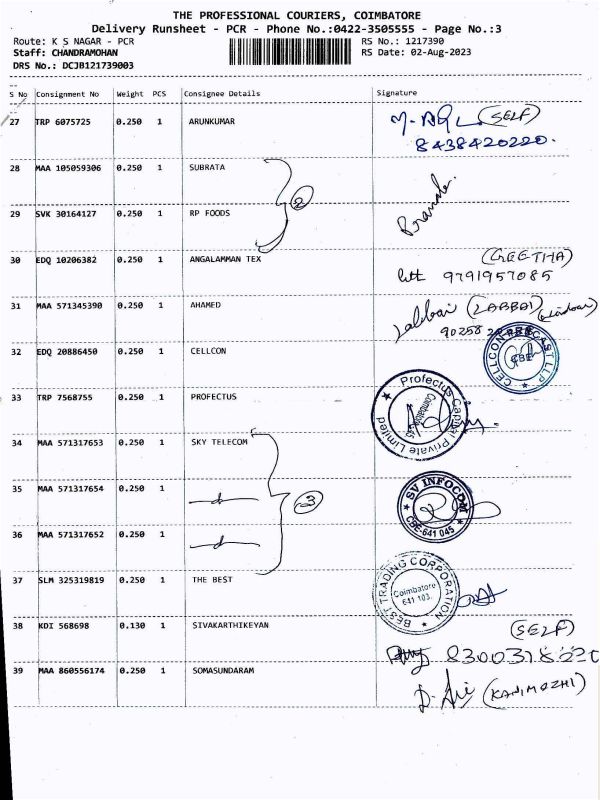 THE PROFESSIONAL COURIERS, COIMBATORE
Delivery Runsheet - PCR - Phone No.:0422-3505555 - Page No.:3
Route: K S NAGAR - PCR RS No.: 1217390
Staff: CHANDRAMOHAN RS Date: 02-Aug-2023
DRS No.: DCJB121739003
S No Consignment No Weight PCS Consignee Details Signature
27 TRP 6075725 0.250 1 ARUNKUMAR (SELF)
8438420220.
28 MAA 105059306 0.250 1 SUBRATA
2
29 SVK 30164127 0.250 1 RP FOODS
30 EDQ 10206382 0.250 1 ANGALAMMAN TEX (GEETHA)
9791957085
31 MAA 571345390 0.250 1 AHAMED (LABBAI)
90258
32 EDQ 20886450 0.250 1 CELLCON CELLCON PRECAST LLP CBE
33 TRP 7568755 0.250 1 PROFECTUS Profectus Capital Private Limited Coimbatore
34 MAA 571317653 0.250 1 SKY TELECOM
35 MAA 571317654 0.250 1 3 SV INFOCOM CBE-641 045
36 MAA 571317652 0.250 1
37 SLM 325319819 0.250 1 THE BEST BEST TRADING CORPORATION Coimbatore 641 103.
38 KDI 568698 0.130 1 SIVAKARTHIKEYAN (SELF)
39 MAA 860556174 0.250 1 SOMASUNDARAM
(KANIMOZHI)